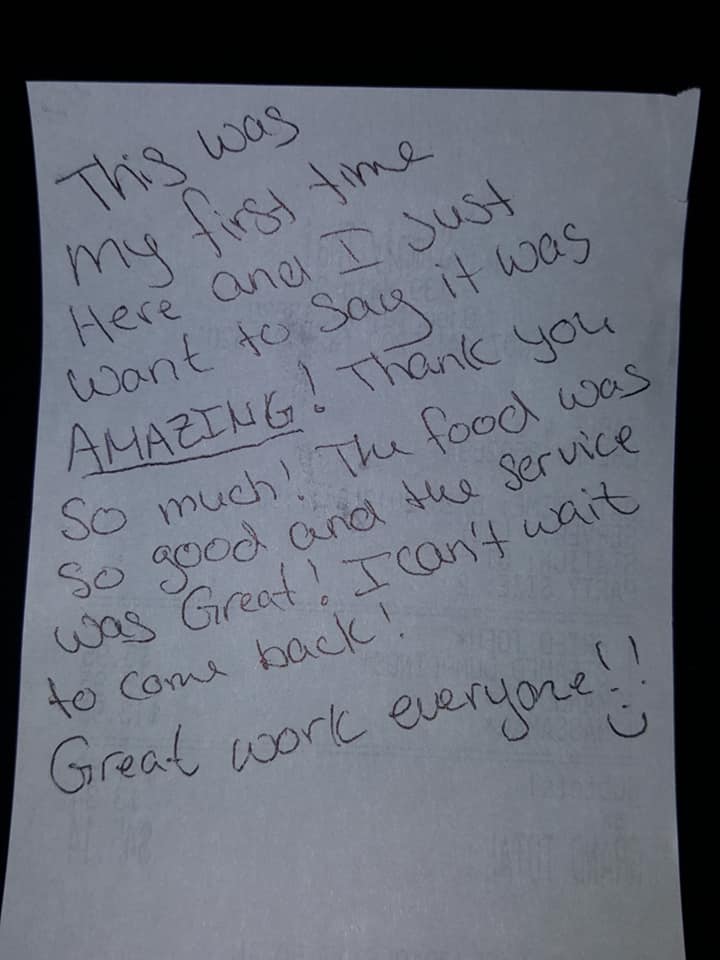 This was
my first time
Here and I Just
want to say it was
AMAZING! Thank you
So much! The food was
so good and the service
was Great! I can't wait
to come back!
Great work everyone!!